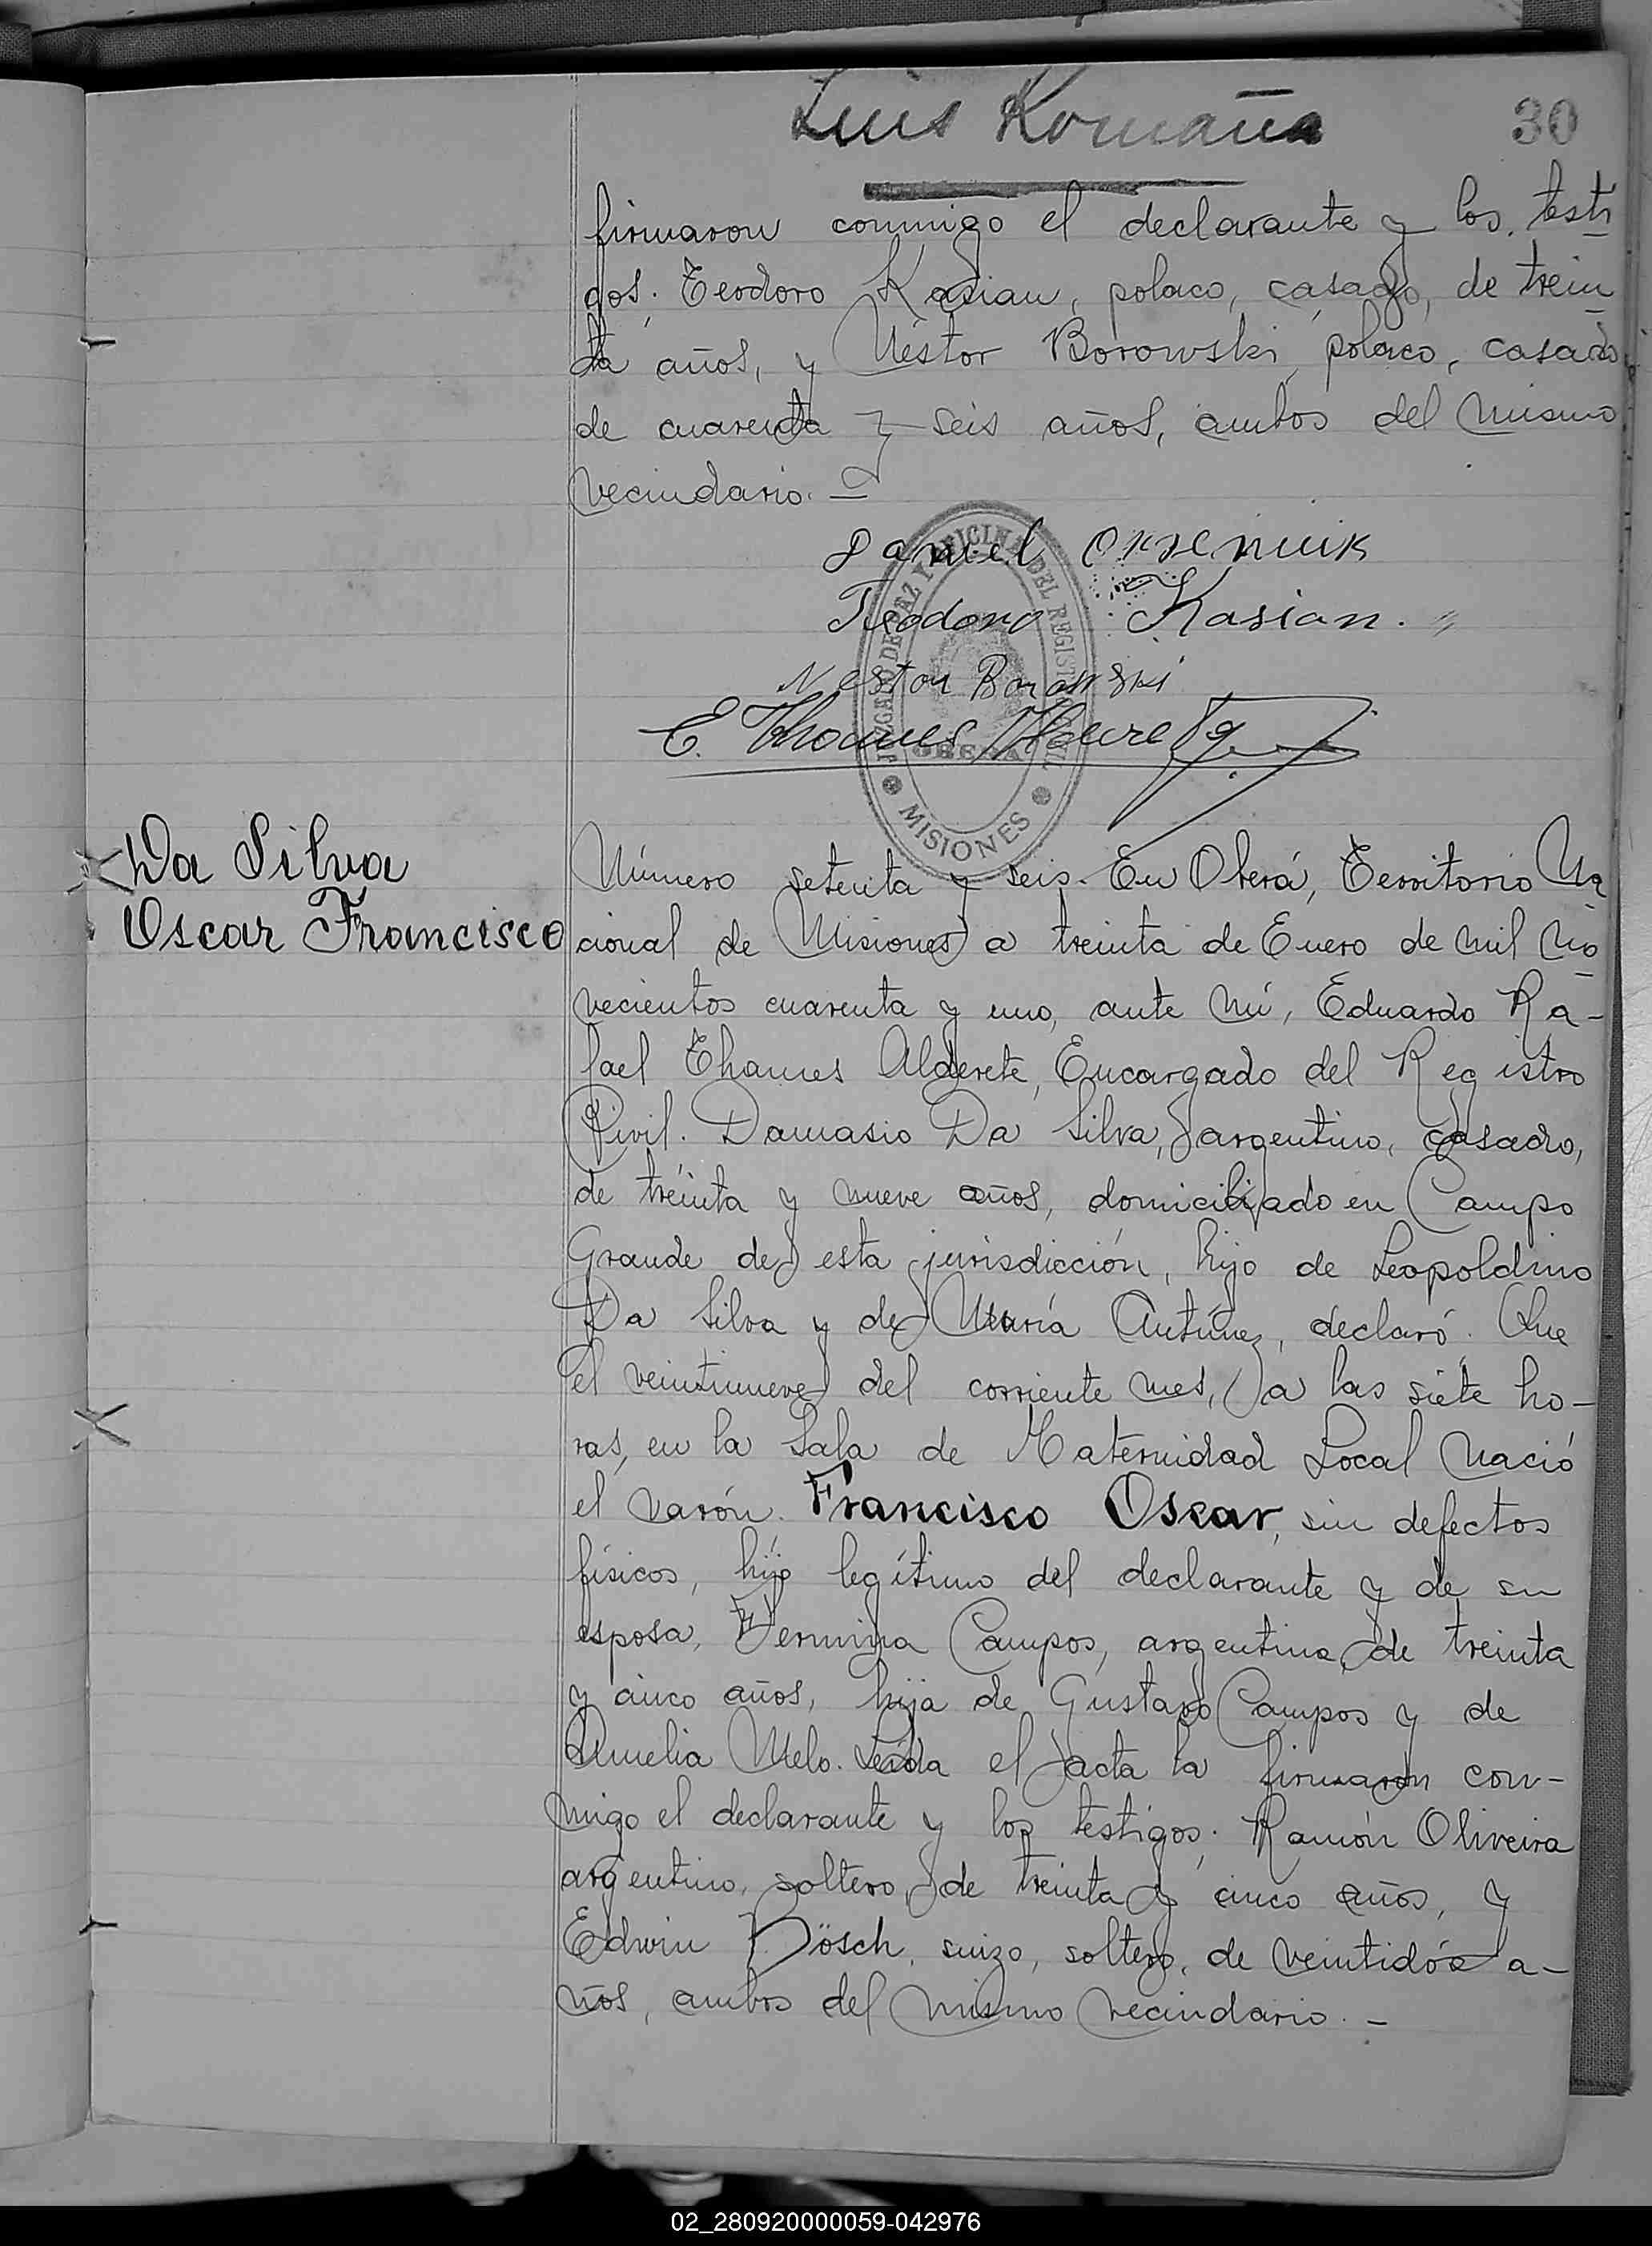 Luis Romaña
30
firmaron conmigo el declarante y los testi
gos. Teodoro Kasian, polaco, casado, de trein
ta años, y Néstor Borowski, polaco, casado,
de cuarenta y seis años, ambos del mismo
vecindario. —
Daniel
Teodoro Kasian.
Nestor Borowski
E. Thames Alderete
JUZGADO DE PAZ Y OFICINA DEL REGISTRO CIVIL
OBERA
MISIONES
Da Silva
Oscar Francisco
Número setenta y seis. En Oberá, Territorio Na
cional de Misiones a treinta de Enero de mil no
vecientos cuarenta y uno, ante mí, Eduardo Ra-
fael Thames Alderete, Encargado del Registro
Civil. Damasio Da Silva, argentino, casado,
de treinta y nueve años, domiciliado en Campo
Grande de esta jurisdicción, hijo de Leopoldino
Da Silva y de María Antúnez, declaró: Que
el veintinueve del corriente mes, a las siete ho-
ras, en la Sala de Maternidad Local nació
el varón. Francisco Oscar, sin defectos
físicos, hijo legítimo del declarante y de su
esposa, Fermina Campos, argentina, de treinta
y cinco años, hija de Gustavo Campos y de
Amelia Melo. Leída el acta la firmaron con-
migo el declarante y los testigos: Ramón Oliveira
argentino, soltero, de treinta y cinco años, y
Edwin Bösch, suizo, soltero, de veintidós a-
ños, ambos del mismo vecindario. —
02_280920000059-042976